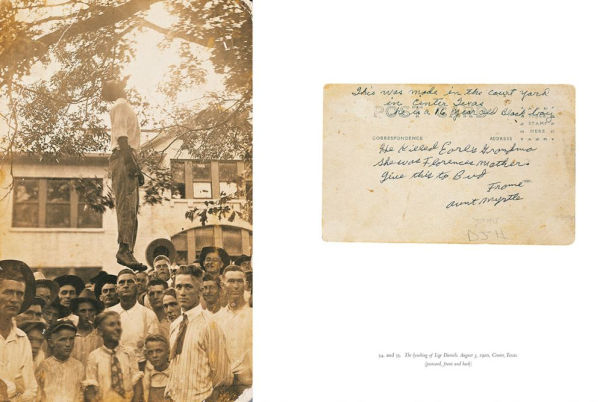 This was made in the court yard
in Center Texas
he is a 16 year old Black boy
POST CARD
CORRESPONDENCE
ADDRESS
STAMP
HERE
He Killed Earls Grandma
She was Florences mother.
Give this to Bud
From
Aunt Myrtle
54. and 55. The lynching of Lige Daniels. August 3, 1920, Center, Texas.
(postcard, front and back)